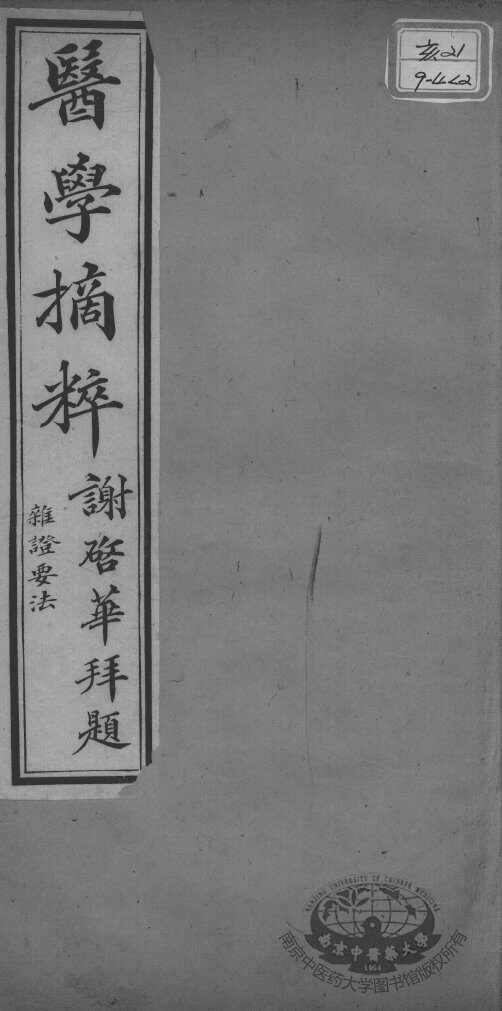 醫學摘粹
謝啓華拜題
雜證要法
亥21
9-4<2
NANJING UNIVERSITY OF CHINESE MEDICINE
南京中醫藥大學
1954
南京中医药大学图书馆版权所有